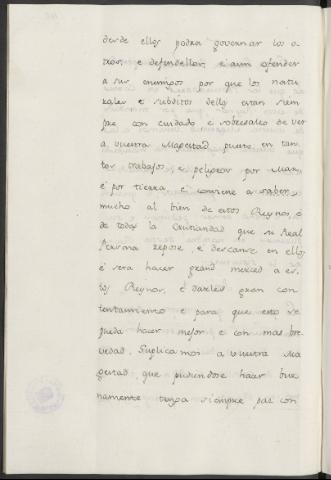 desde ellos podra governar los o-
tros, e defendellos, e aun ofender
a sus enemigos por que los natu
rales e subditos dellos estan siem
pre con cuidado e sobresalto de ver
a vuestra Magestad puesto en tan
tos trabajos, e peligros por Mar,
e por tierra, e conviene a saber
mucho al bien de estos Reynos, e
de toda la Cristiandad que su Real
Persona repose, e descanse en ellos
e sera hacer grand merced a es-
tos Reynos, e darles gran con
tentamiento e para que esto se
pueda hacer mejor e con mas bre
vedad. Suplicamos a Vuestra Ma
gestad, que pudiendose hacer bue
namente tenga siempre paz con